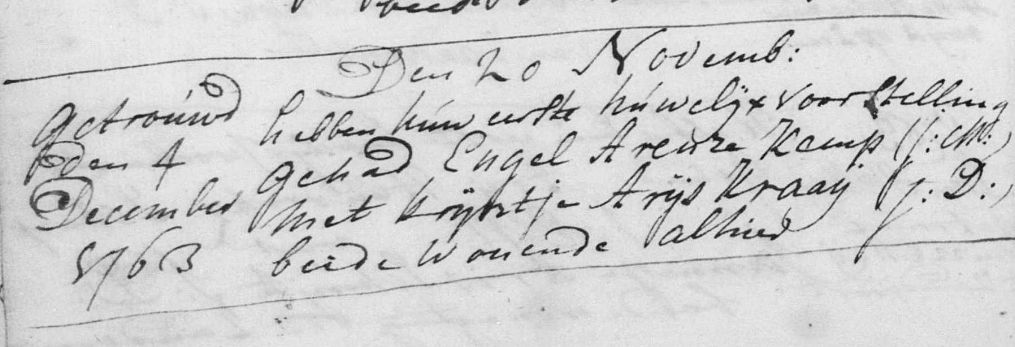 Den 20 Novemb:
getrouwd
den 4
December
1763
hebben hun eerste huwelijx voorstelling
gehad Engel Arentze Kamp (j: M:)
met Krijntje Arijs Kraaij (j: D:)
beide wonende alhier